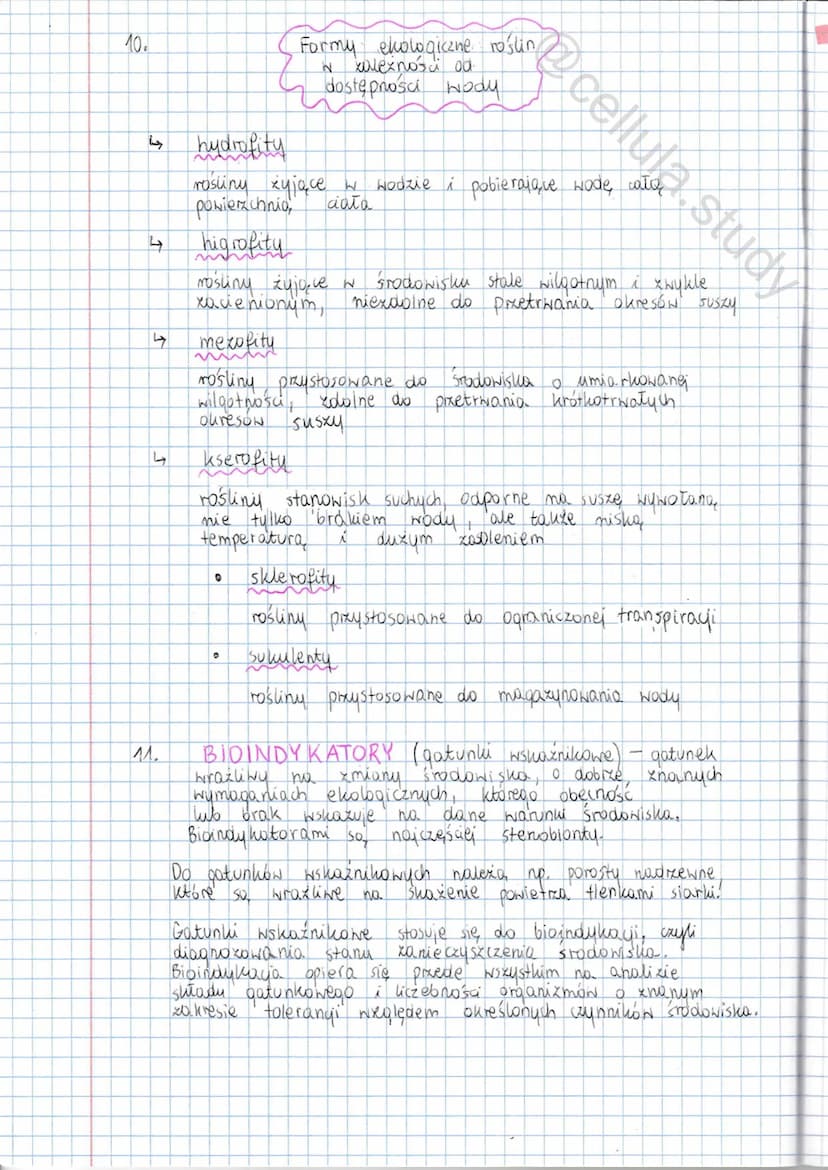 10.
Formy ekologiczne roślin
w zależności od
dostępności wody
@cellula.study
↳ hydrofity
rośliny żyjące w wodzie i pobierające wodę całą
powierzchnią ciała
↳ higrofity
rośliny żyjące w środowisku stale wilgotnym i zwykle
zacienionym, niezdolne do przetrwania okresów suszy
↳ mezofity
rośliny przystosowane do środowiska o umiarkowanej
wilgotności, zdolne do przetrwania krótkotrwałych
okresów suszy
↳ kserofity
rośliny stanowisk suchych, odporne na suszę wywołaną
nie tylko brakiem wody, ale także niską
temperaturą i dużym zasoleniem
• sklerofity
rośliny przystosowane do ograniczonej transpiracji
• sukulenty
rośliny przystosowane do magazynowania wody
11. BIOINDYKATORY (gatunki wskaźnikowe) – gatunek
wrażliwy na zmiany środowiska, o dobrze znanych
wymaganiach ekologicznych, którego obecność
lub brak wskazuje na dane warunki środowiska.
Bioindykatorami są najczęściej stenobionty.
Do gatunków wskaźnikowych należą np. porosty nadrzewne,
które są wrażliwe na skażenie powietrza tlenkami siarki!
Gatunki wskaźnikowe stosuje się do bioindykacji, czyli
diagnozowania stanu zanieczyszczenia środowiska.
Bioindykacja opiera się przede wszystkim na analizie
składu gatunkowego i liczebności organizmów o znanym
zakresie tolerancji względem określonych czynników środowiska.